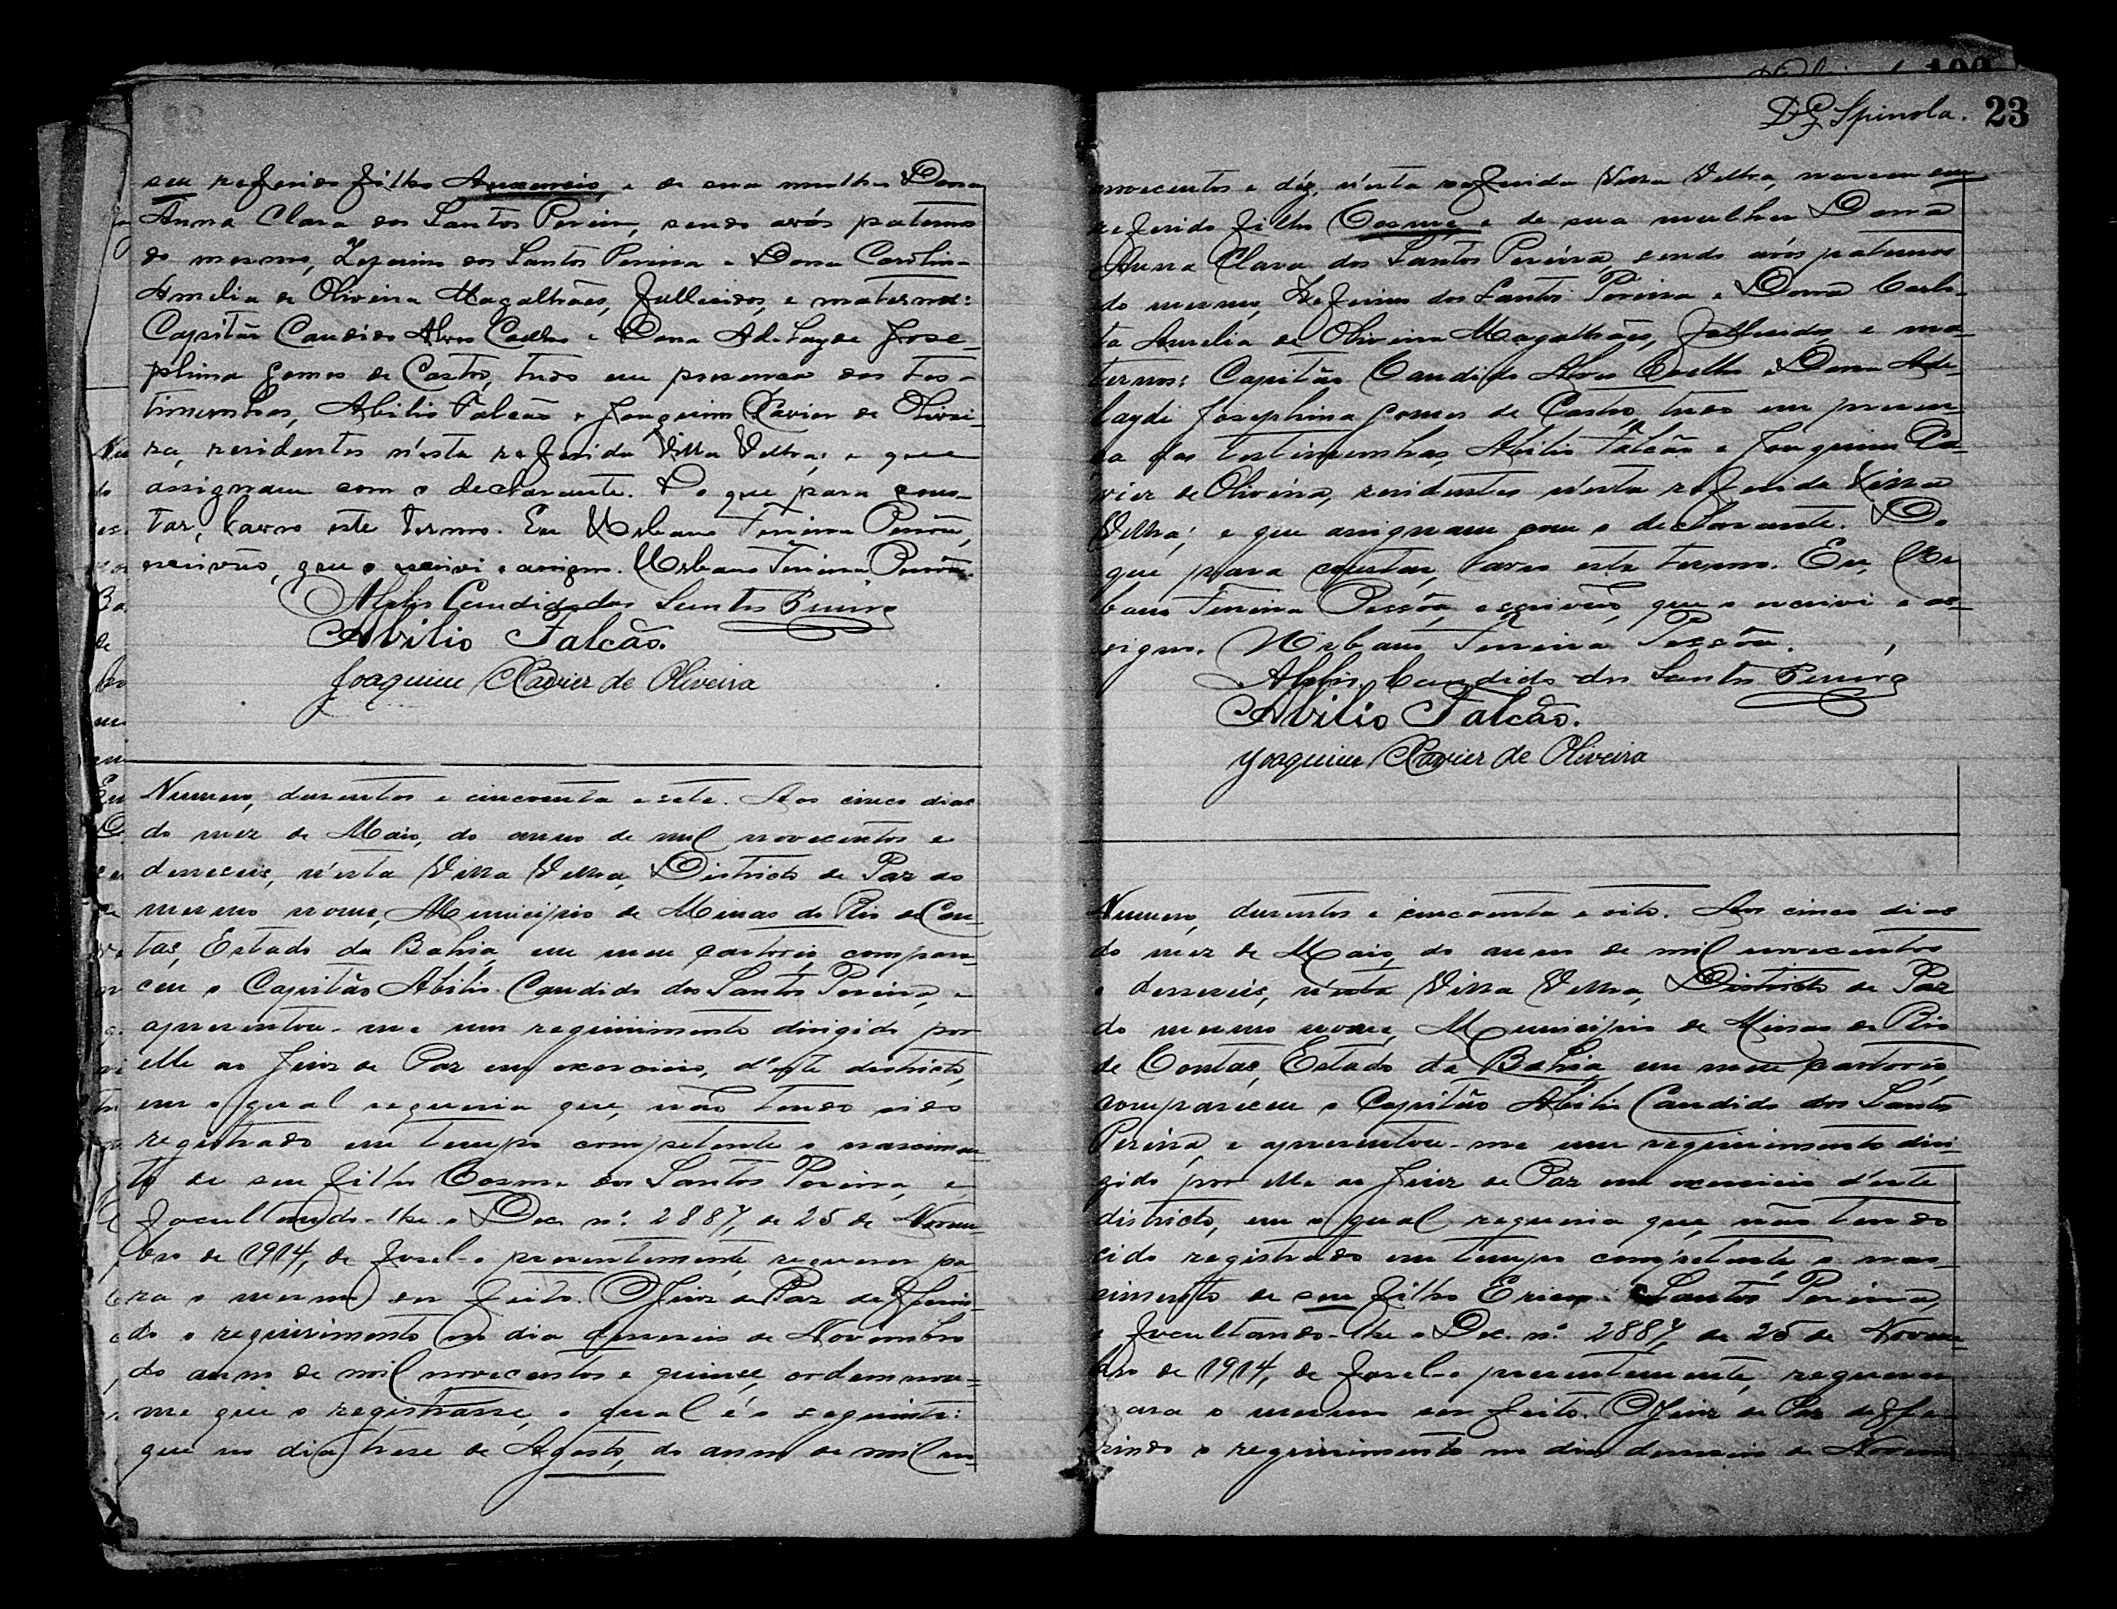 seu referido filho e de sua mulher Dona
Anna Clara dos Santos Pereira, sendo avós paternos
do mesmo, Zeferino dos Santos Pereira e Dona
Amelia de Oliveira Magalhães, fallecidos, e maternos:
Capitão Candido Alves Coelho e Dona Adelayde Jose-
phina Gomes de Castro, tudo em presença das tes-
timunhas, Abilio Falcão e Joaquim Xavier de Olivei-
ra, residentes n'esta referida Villa Velha; e que
assignam com o declarante. Do que para cons-
tar, lavro este termo. Eu Urbano Ferreira Pessôa,
escrivão, que o escrivi e assigno. Urbano Ferreira Pessôa.
Abilio Candido dos Santos Pereira
Abilio Falcão.
Joaquim Xavier de Oliveira
Numero, duzentos e cincoenta e sete. Aos cinco dias
do mez de Maio, do anno de mil novecentos e
dezeseis, n'esta Villa Velha, Districto de Paz do
mesmo nome, Municipio de Minas do Rio de Con-
tas, Estado da Bahia, em meu cartorio, compare-
ceu o Capitão Abilio Candido dos Santos Pereira, e
apresentou-me um requirimento dirigido por
elle ao Juiz de Paz em exercicio, d'este districto,
em o qual requeria que, não tendo sido
registrado em tempo competente o nascimen-
to de seu filho Cosme dos Santos Pereira, e
facultando-lhe o Dec. nº. 2887, de 25 de Novem-
bro de 1914, de fasel-o presentemente, requerer pa-
ra o mesmo ser feito. O Juiz de Paz defferin-
do o requirimento no dia deseseis de Novembro
do anno de mil novecentos e quinse, ordennou-
me que o registrasse, o qual é o seguinte:
que no dia trese de Agosto, do anno de mil no-
D G Spinola. 23
novecentos e déz, n'esta referida Villa Velha, nasceu seu
referido filho Cosme, e de sua mulher Dona
Anna Clara dos Santos Pereira, sendo avós paternos
do mesmo, Zeferino dos Santos Pereira e Dona Carlo-
ta Amelia de Oliveira Magalhães, fallecidos, e ma-
ternos: Capitão Candido Alves Coelho e Dona Ade-
layde Josephina Gomes de Castro, tudo em presen-
ça das testimunhas, Abilio Falcão e Joaquim Xa-
vier de Oliveira, residentes n'esta referida Villa
Velha; e que assignam com o declarante. Do
que para constar, lavro este termo. Eu, Ur-
bano Ferreira Pessôa, escrivão, que o escrivi e as-
signo. Urbano Ferreira Pessôa.
Abilio Candido dos Santos Pereira
Abilio Falcão.
Joaquim Xavier de Oliveira
Numero, duzentos e cincoenta e oito. Aos cinco dias
do mez de Maio, do anno de mil novecentos
e dezeseis, n'esta Villa Velha, Districto de Paz
do mesmo nome, Municipio de Minas do Rio
de Contas, Estado da Bahia, em meu cartorio,
compareceu o Capitão Abilio Candido dos Santos
Pereira, e apresentou-me um requirimento diri-
gido por elle ao Juiz de Paz em exercicio d'este
districto, em o qual requeria que, não tendo
sido registrado em tempo competente, o nas-
cimento de seu filho Santos Pereira,
e facultando-lhe o Dec. nº 2887, de 25 de Novem-
bro de 1914, de fasel-o presentemente, requerer
para o mesmo ser feito. O Juiz de Paz deffe-
rindo o requirimento no dia deseseis de Novem-